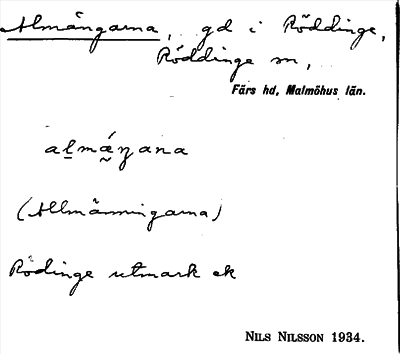 Almängarna, gd i Röddinge,
Röddinge sn,
Färs hd, Malmöhus län.
alm
(Allmänningarna)
Rödinge utmark ek
NILS NILSSON 1934.